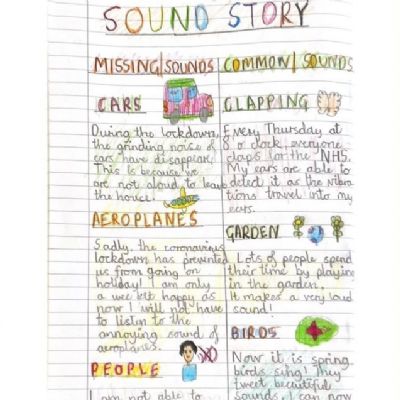 SOUND STORY
MISSING SOUNDS
CARS
During the lockdown,
the grinding noise of
cars have disappear.
This is because we
are not aloud to leave
the house.
AEROPLANES
Sadly, the coronavirus
lockdown has prevented
us from going on
holiday! I am only
a wee bit happy as
now I will not have
to listen to the
annoying sound of
aeroplanes.
PEOPLE
I am not able to
COMMON SOUNDS
CLAPPING
Every Thursday at
8 o clock everyone
claps for the NHS.
My ears are able to
detect it as the vibra
tions travel into my
ears.
GARDEN
Lots of people spend
their time by playing
in the garden.
It makes a very loud
sound!
BIRDS
Now it is spring
birds sing! They
tweet beautiful
sounds. I can now